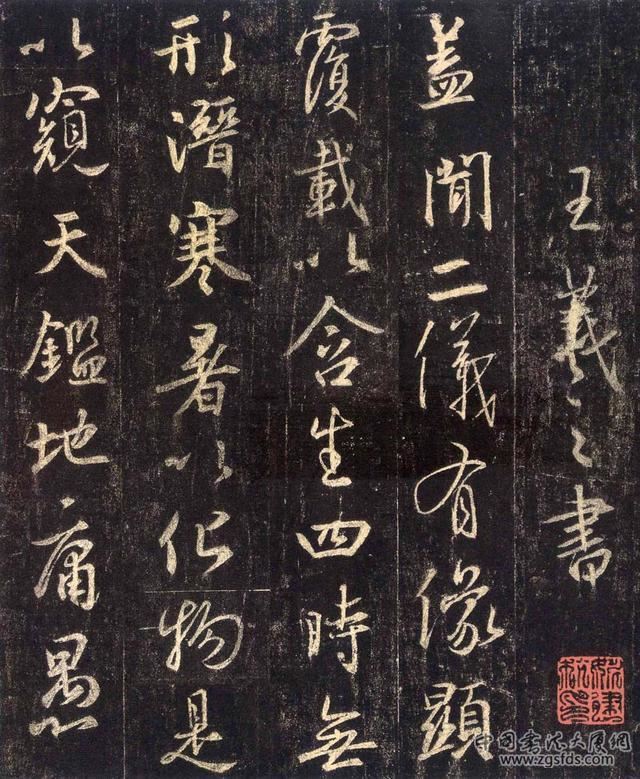 王羲之書
蓋聞二儀有像顯
覆載以含生四時無
形潛寒暑以化物是
以窺天鑑地庸愚
中国书法大展网
www.zgsfds.com